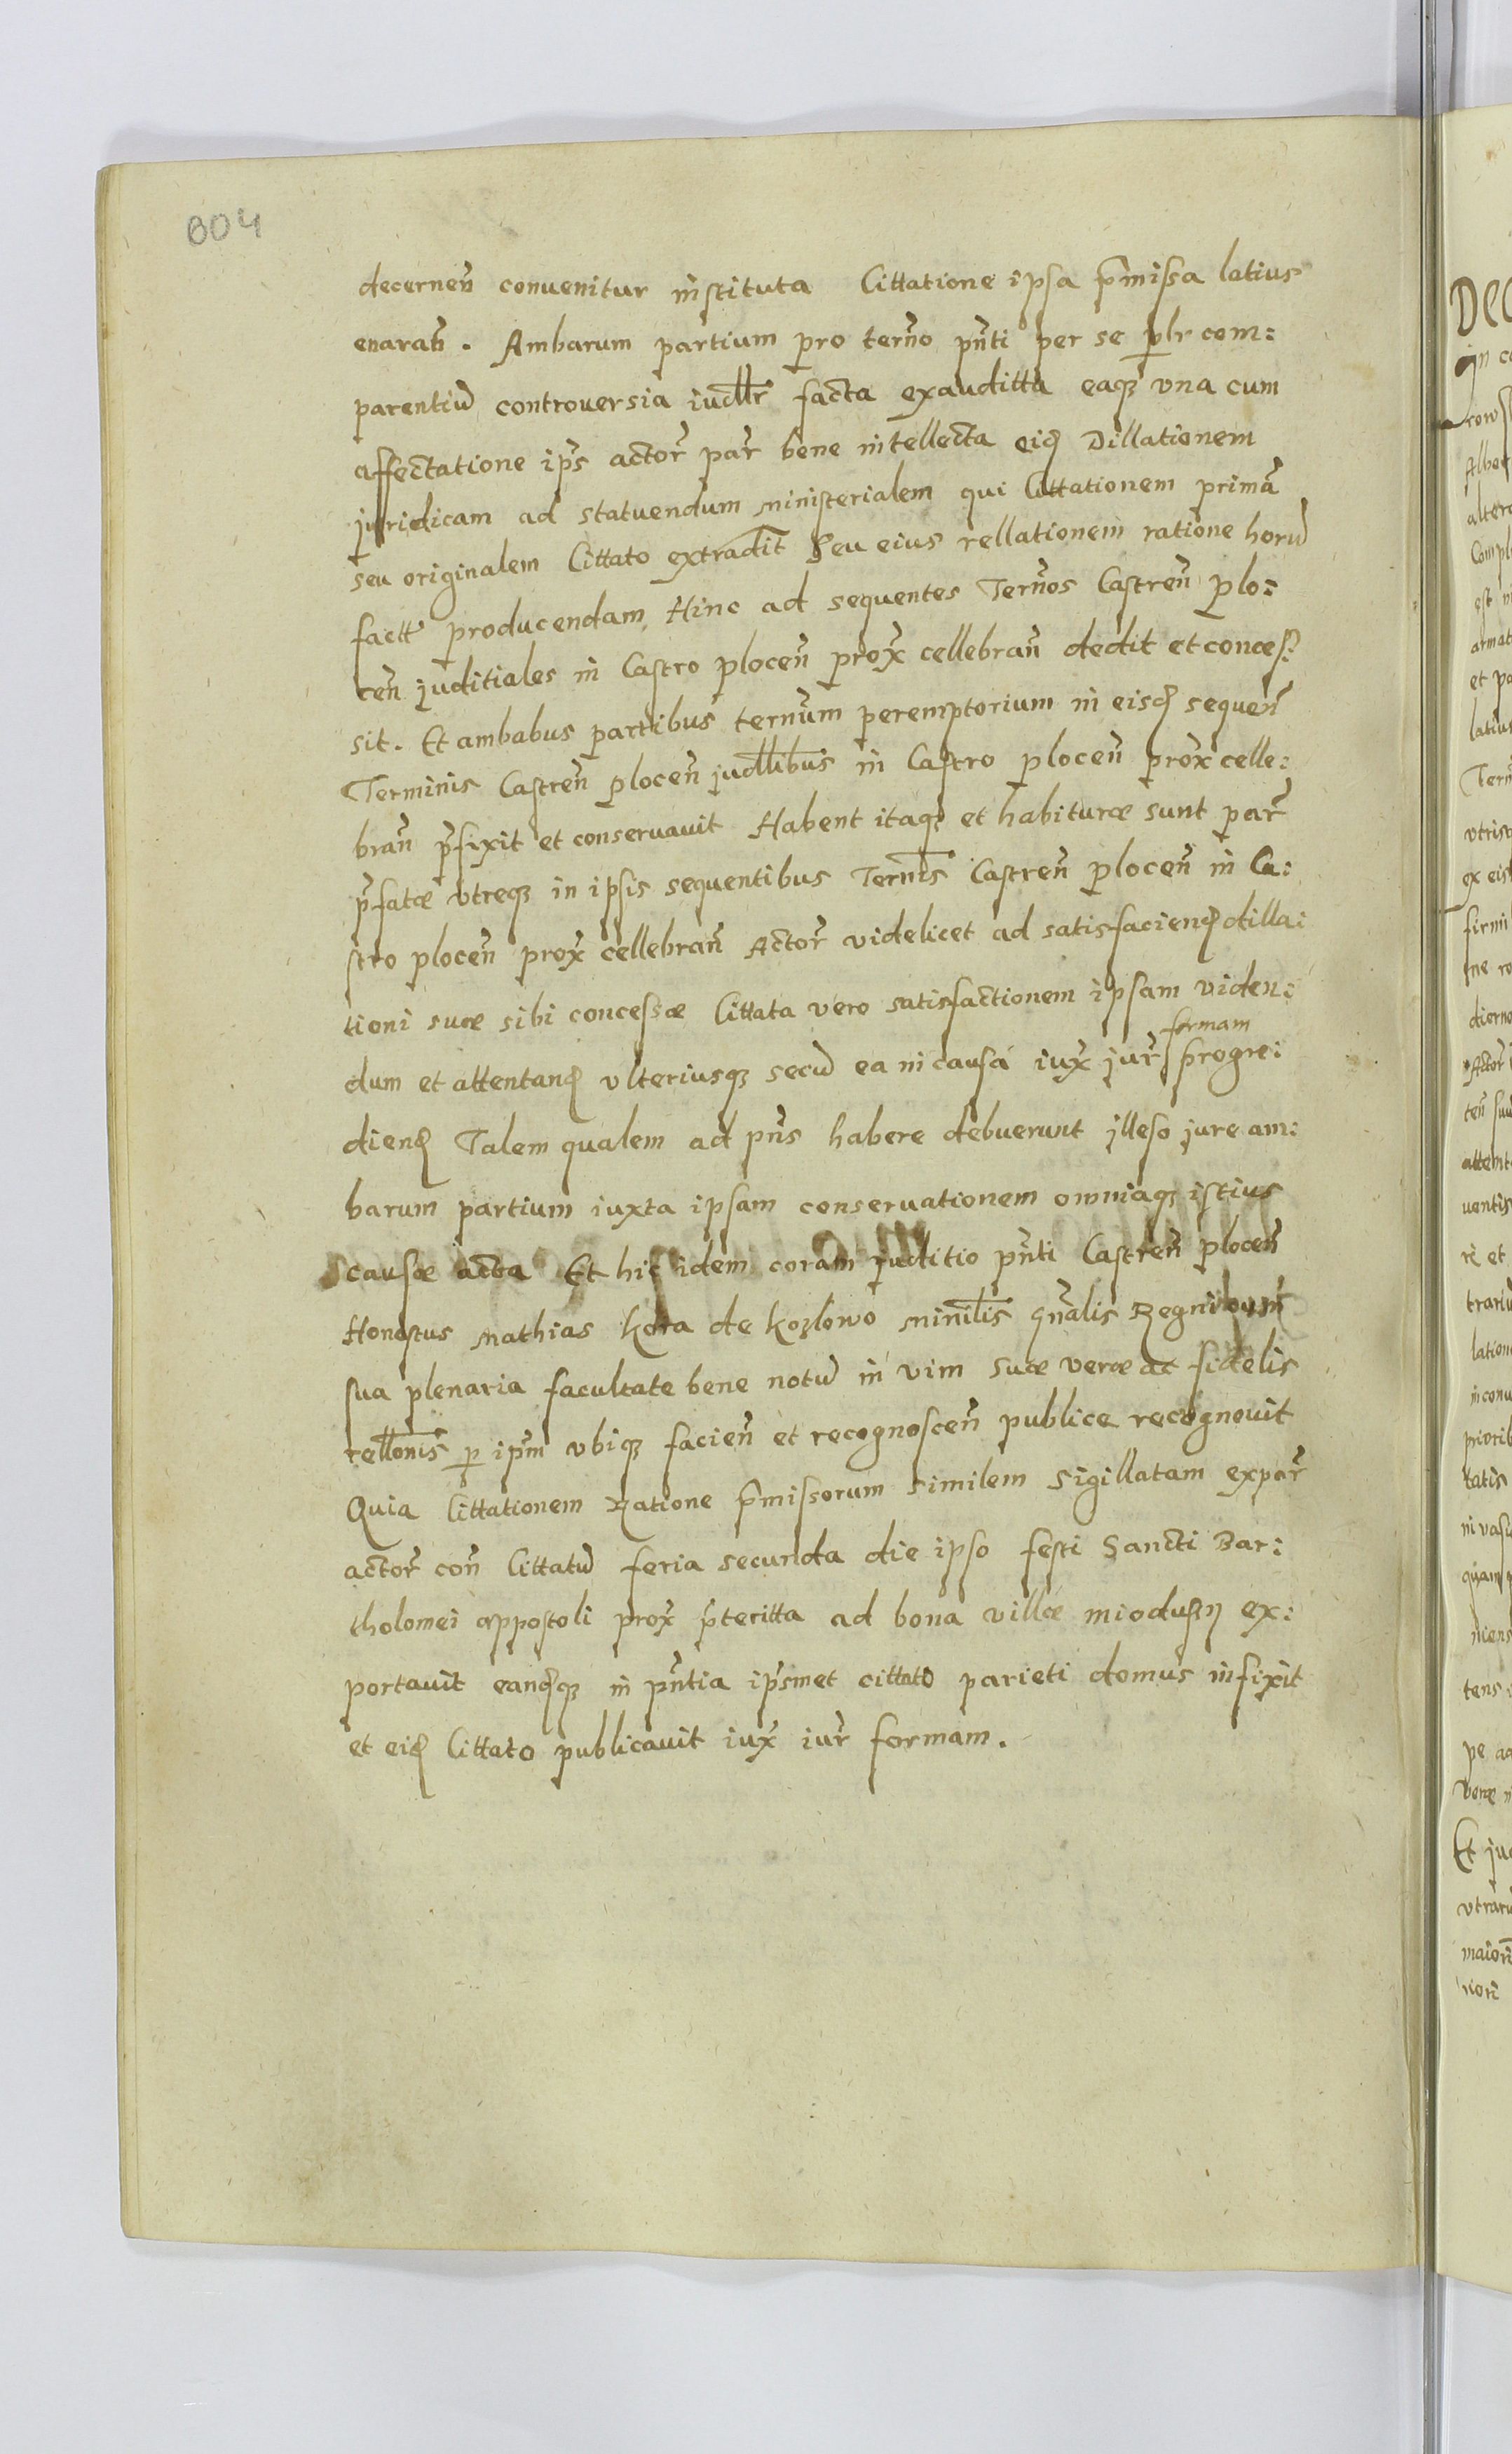 804
decerneñ conuenitur instituta Cittatione ipsa p̃missa latius
enarañ. Ambarum partium pro terño pñti per se plr̃ com:
parentiū controuersia iudllr̃ facta exauditta eaqȝ vna cum
affectatione ip̃s actor̃ par̃ bene intellecta eid̃ Dillationem
juridicam ad statuendum ministerialem qui Cittationem primā
seu originalem Cittato extradit̃ Seu eius rellationem ratione horū
factt̃ producendam, Hinc ad sequentes Terños Castreñ plo:
ceñ juditiales in Castro ploceñ prox̃ cellebrañ dedit et conces:
sit. Et ambabus partibus terñum peremptorium in eisd̃ sequeñ
Terminis Castreñ ploceñ judllibus̃ in Castro ploceñ prox̃ celle:
brañ p̃fixit et conseruauit Habent itaqȝ et habituræ sunt par̃
p̃fatæ vtreqȝ in ipsis sequentibus Terñis Castreñ ploceñ in Ca:
stro ploceñ prox̃ cellebrañ Actor̃ videlicet ad satisfaciend̃ dilla:
tioni suæ sibi concessæ Cittata vero satisfactionem ipsam viden:
formam
dum et attentand̃ vlteriusqȝ secū ea in causa iux̃ jur̃ progre:
diend̃ Talem qualem ad pñs habere debuerunt jlleso jure am:
barum partium iuxta ipsam conseruationem omniaqȝ istius
causæ acta Et hic idem coram juditio pñti Castreñ ploceñ
Honestus Mathias Kora de Kozlowo minilis̃ gñalis Regni
sua plenaria facultate bene notū in vim suæ veræ ac fidelis
rellonis̃ p ipm̃ vbiqȝ facieñ et recognosceñ publice recognouit
Quia Cittationem Ratione p̃missorum similem sigillatam ex par̃
actor̃ coñ Cittatū feria secunda die ipso festi Sancti Bar:
tholomei appostoli prox̃ p̃teritta ad bona villæ miodusȝy ex:
portauit eand̃qȝ in pñtia ip̃smet cittato parieti domus infixit
et eid̃ Cittato publicauit iux̃ iur̃ formam.